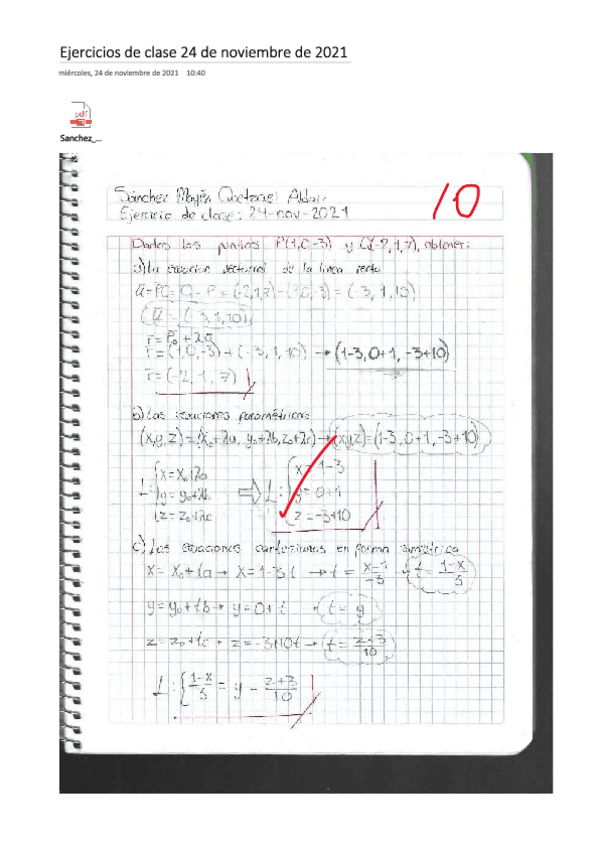 Ejercicios de clase 24 de noviembre de 2021
miércoles, 24 de noviembre de 2021 10:40
Sanchez_...
Sánchez Mayén Aldair
10
Ejercicio de clase: 24-nov-2021
Dados los puntos P(1,0,-3) y Q(-2,1,7), obtener:
a) La ecuación vectorial de la línea recta
ū=PQ=Q-P=(-2,1,7)-(1,0,-3)=(-3,1,10)
ū=(-3,1,10)
r̄=P₀+λū
r̄=(1,0,-3)+(-3,1,10)→(1-3,0+1,-3+10)
r̄=(-2,1,7)
b) Las ecuaciones paramétricas
(x,y,z)=(x₀+λa, y₀+λb, z₀+λc)→(x,y,z)=(1-3,0+1,-3+10)
x=x₀+λa x=1-3
L: y=y₀+λb ⇒ L: y=0+1
z=z₀+λc z=-3+10
c) Las ecuaciones cartesianas en forma simétrica
x=x₀+ta→x=1-3t→t=x-1/-3 t=1-x/3
y=y₀+tb→y=0+t t=y
z=z₀+tc→z=-3+10t→t=z-3/10
L:{1-x/3=y-z+3/10